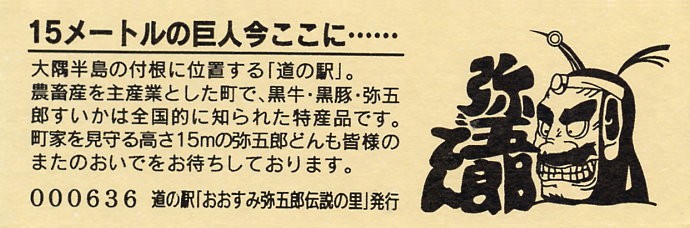 15メートルの巨人今ここに……
大隅半島の付根に位置する「道の駅」。
農畜産を主産業とした町で、黒牛・黒豚・弥五
郎すいかは全国的に知られた特産品です。
町家を見守る高さ15mの弥五郎どんも皆様の
またのおいでをお待ちしております。
000636 道の駅「おおすみ弥五郎伝説の里」発行
弥五郎どん